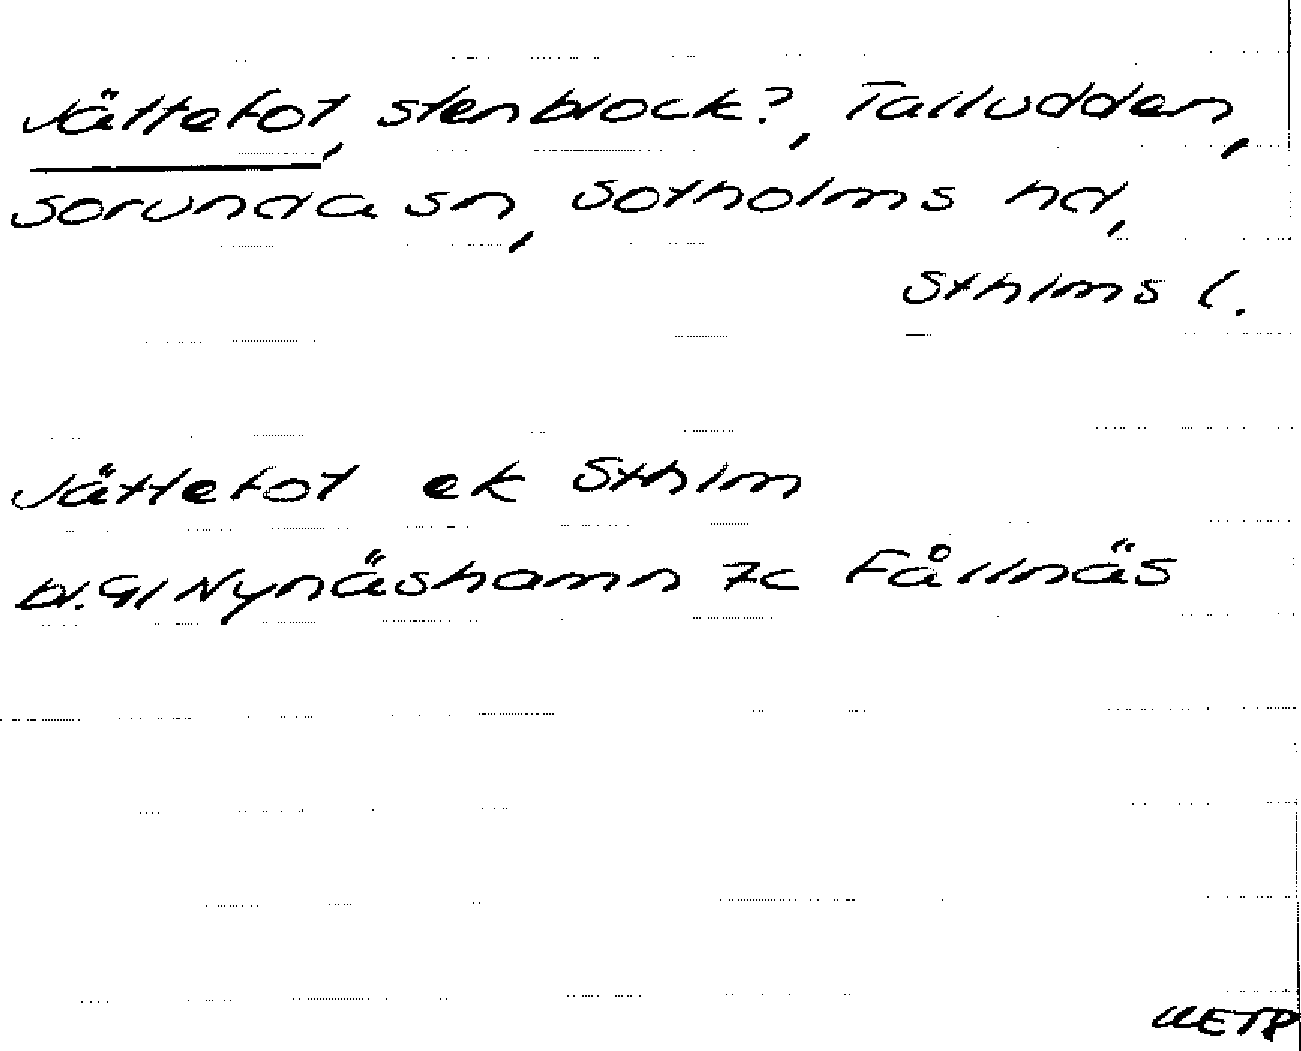 Jättefot, stenblock?, Talludden,
Sorunda sn, Sotholms hd,
Sthlms l.
Jättefot ek Sthlm
bl. 91 Nynäshamn 7c Fållnäs